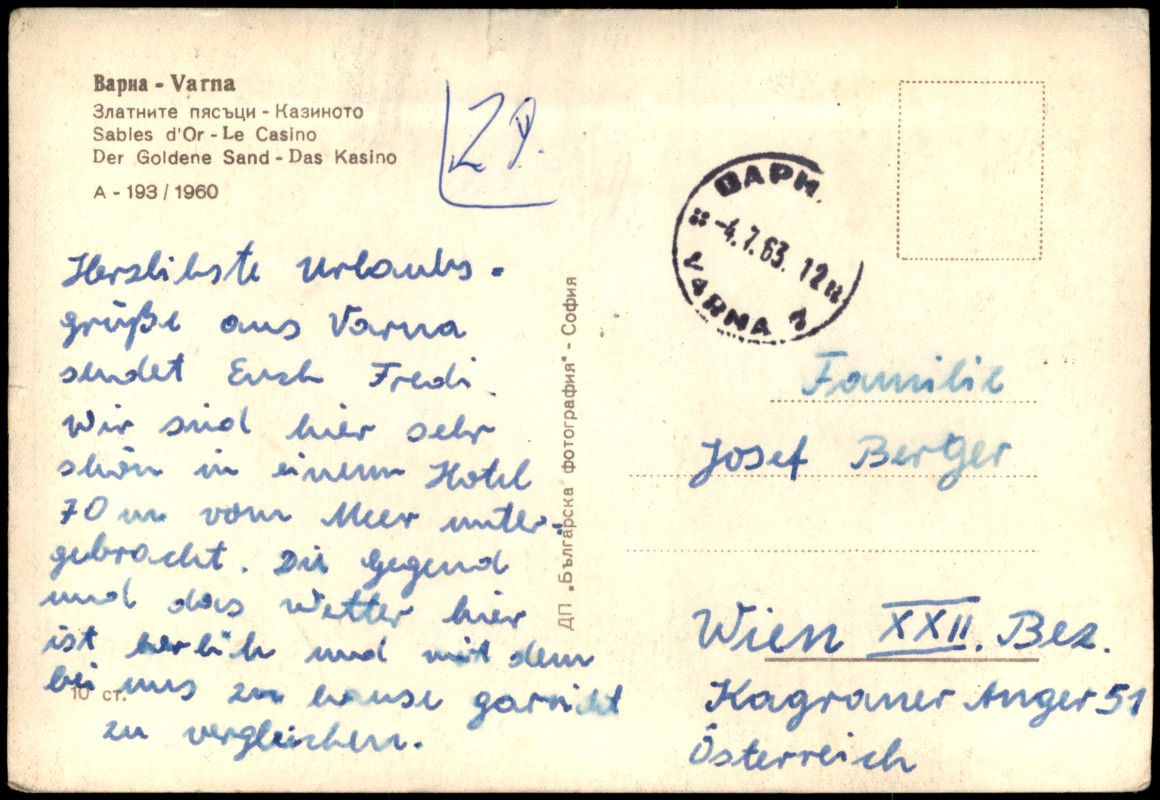 Варна - Varna
Златните пясъци - Казиното
Sables d'Or - Le Casino
Der Goldene Sand - Das Kasino
А - 193 / 1960
Herzlibste Urlaubs-
grüße aus Varna
sendet Euch Fredi.
Wir sind hier sehr
schön in einem Hotel
70 m vom Meer unter-
gebracht. Die Gegend
und das Wetter hier
ist herlich und mit dem
bei uns zu hause garnicht
zu vergleichen.
10 ст.
ДП „Българска фотография" - София
ВАРН
-4.7.63. 12
VARNA 3
Familie
Josef Berger
Wien XXII. Bez.
Kagraner Anger 51
Österreich